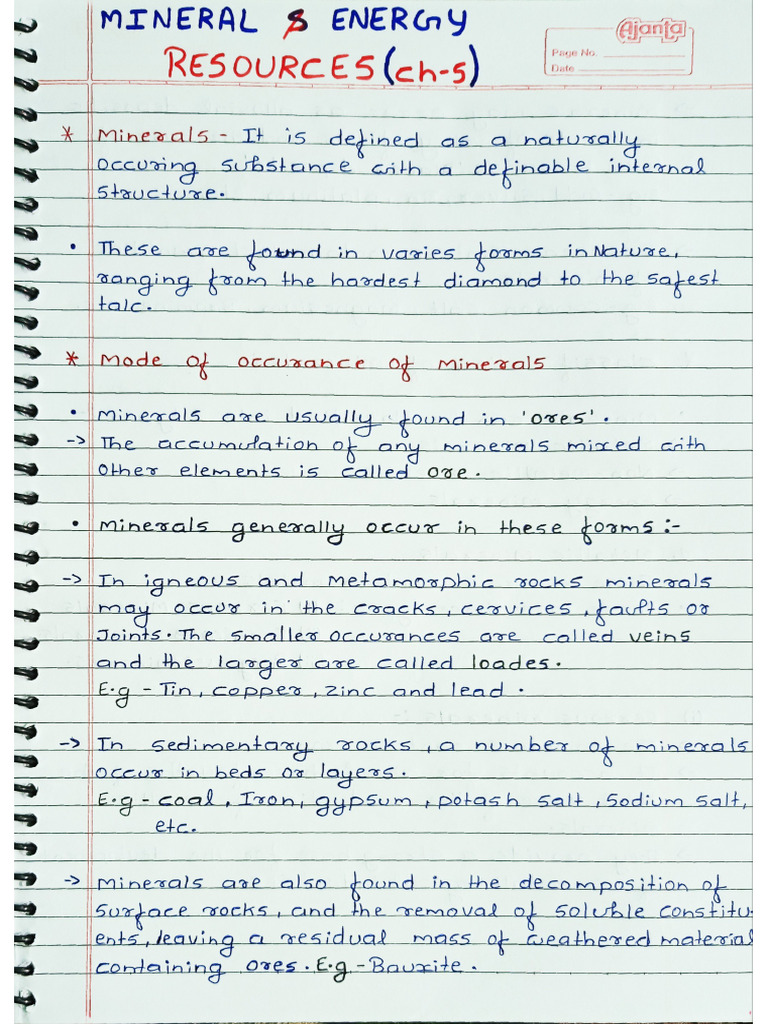 MINERAL & ENERGY
RESOURCES (ch-5)
Ajanta
Page No.
Date
* Minerals - It is defined as a naturally
occuring substance with a definable internal
structure.
• These are found in varies forms in Nature,
ranging from the hardest diamond to the safest
talc.
* Mode of occurance of Minerals
• Minerals are usually found in 'ores'.
-> The accumulation of any minerals mixed with
other elements is called ore.
• Minerals generally occur in these forms :-
-> In igneous and metamorphic rocks minerals
may occur in the cracks, cervices, faults or
Joints. The smaller occurances are called veins
and the larger are called loades.
E.g - Tin, copper, zinc and lead.
-> In sedimentary rocks, a number of minerals
occur in beds or layers.
E.g - coal, Iron, gypsum, potash salt, Sodium salt,
etc.
-> Minerals are also found in the decomposition of
surface rocks, and the removal of soluble constitu-
ents, leaving a residual mass of weathered material
containing ores. E.g - Bauxite.